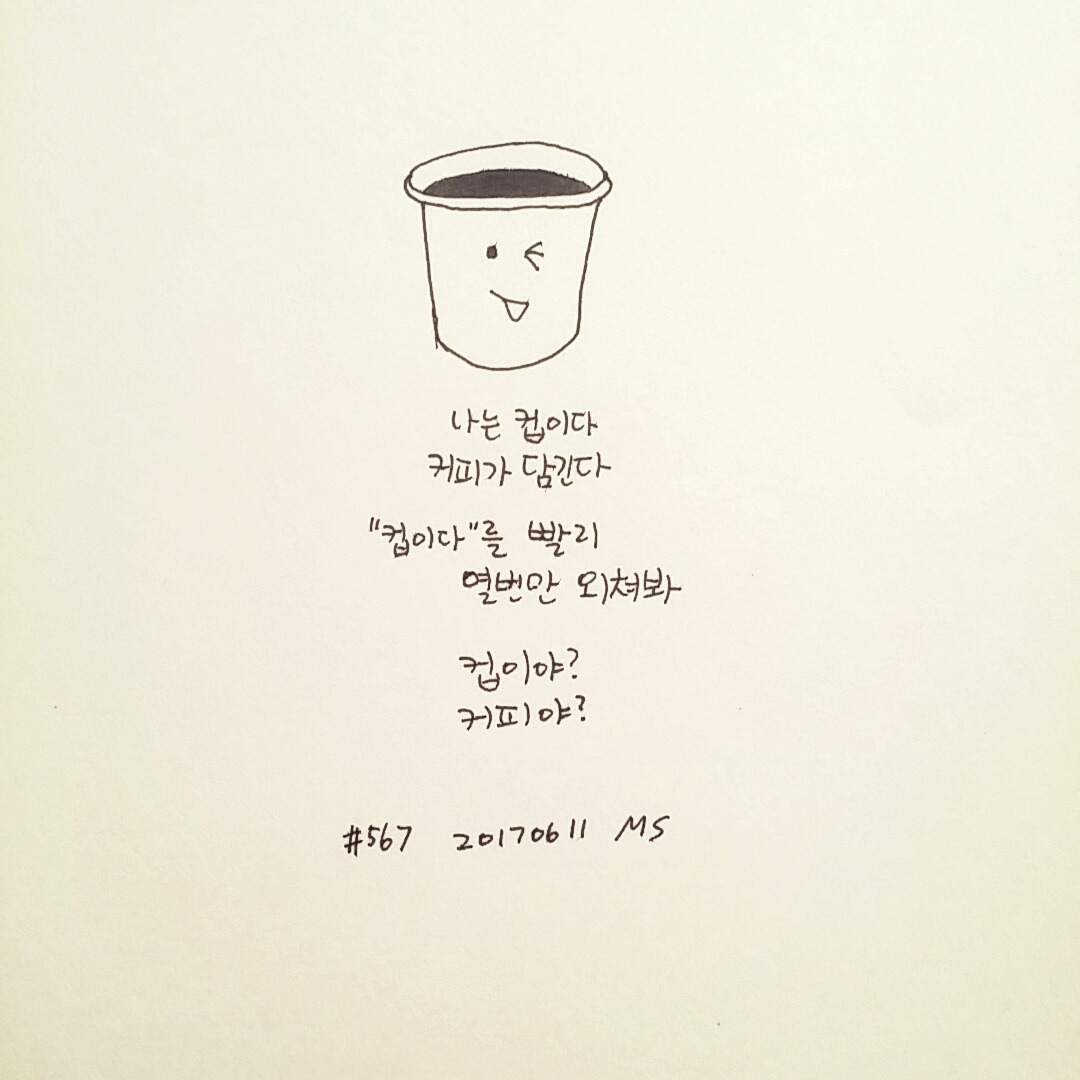 나는 컵이다
커피가 담긴다
"컵이다"를 빨리
열번만 외쳐봐
컵이야?
커피야?
#567 20170611 MS